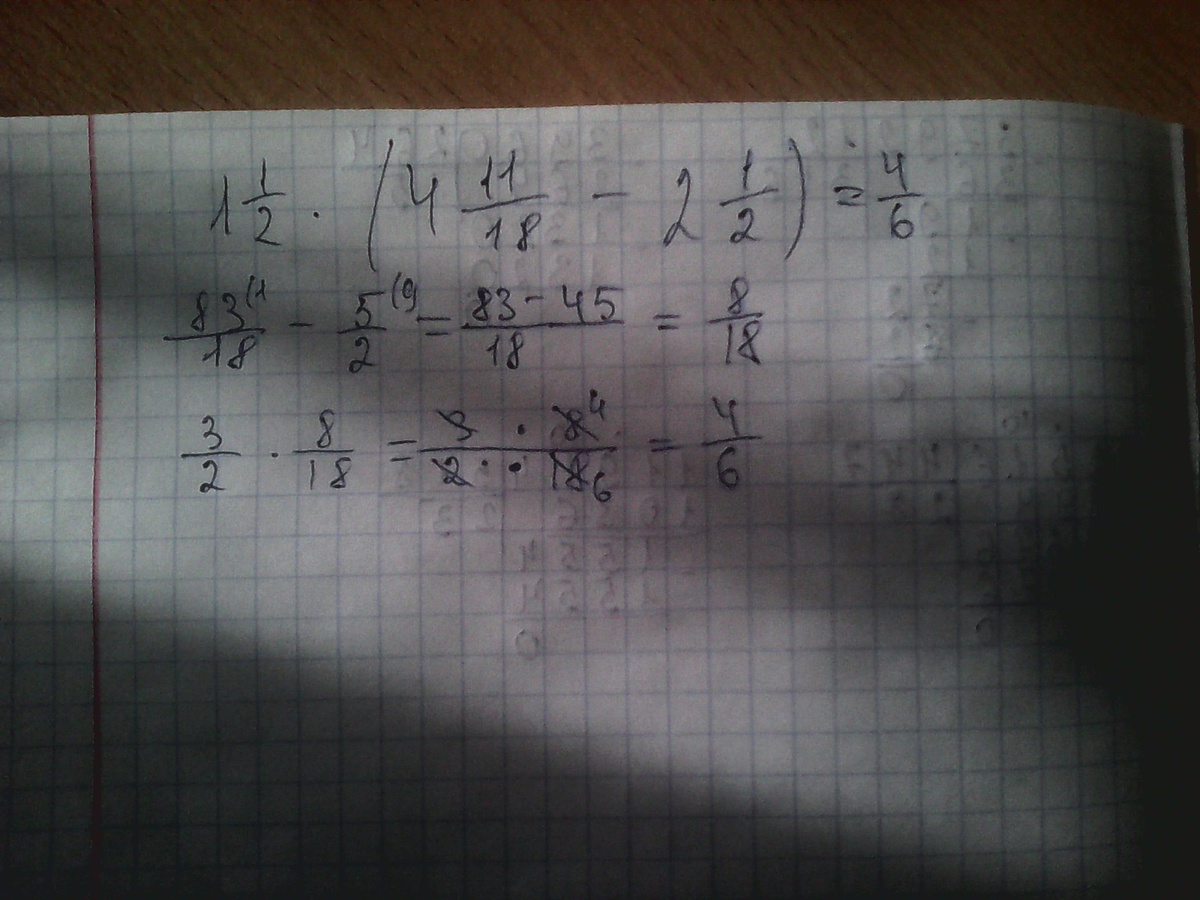 1 1/2 · (4 11/18 - 2 1/2) = 4/6
83(1/18 - 5(9/2 = 83-45/18 = 8/18
3/2 · 8/18 = 3 · 8 4/2 · 18 6 = 4/6